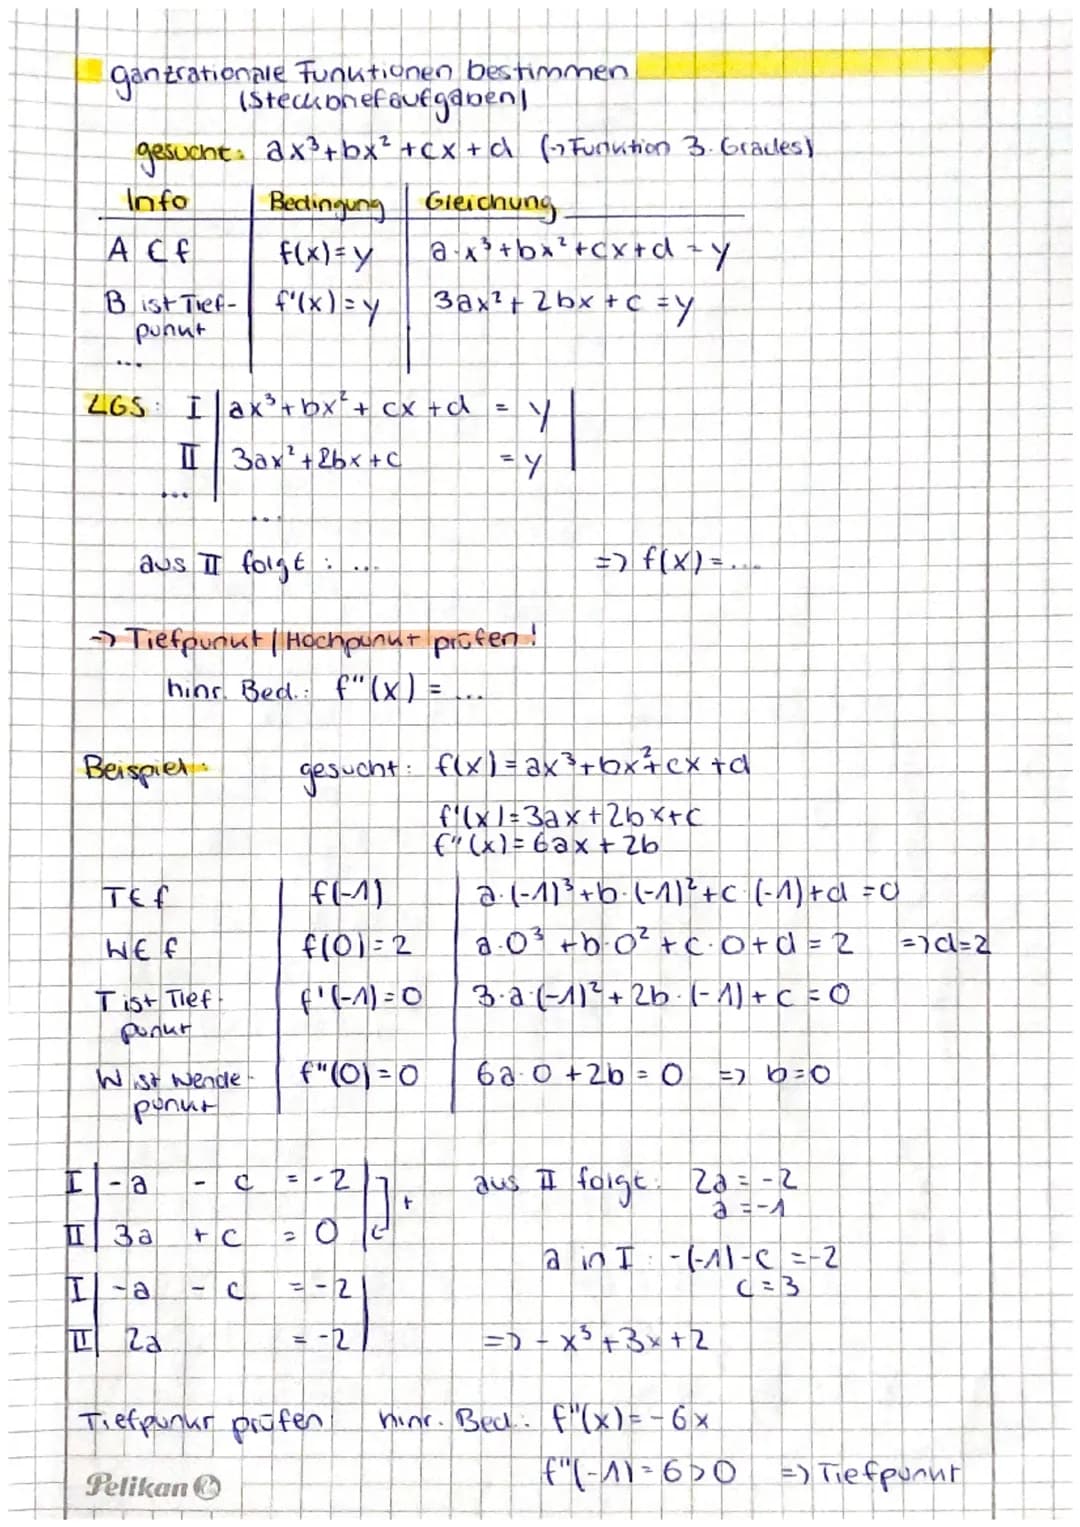 ganzrationale Funktionen bestimmen
(Steckbriefaufgaben)
gesucht: ax³+bx²+cx+d (→Funktion 3. Grades)
Info Bedingung Gleichung
A ∈ f f(x)=y a·x³+bx²+cx+d = y
B ist Tief- f'(x)=y 3ax²+2bx+c=y
punkt
...
LGS: I | ax³+bx²+cx+d = y |
II | 3ax²+2bx+c = y |
...
...
aus II folgt: ... => f(x)=...
-> Tiefpunkt | Hochpunkt prüfen!
hinr. Bed.: f"(x) = ...
Beispiel: gesucht: f(x)=ax³+bx²+cx+d
f'(x)=3ax+2bx+c
f"(x)=6ax+2b
T∈f f(-1) a·(-1)³+b·(-1)²+c·(-1)+d=0
W∈f f(0)=2 a·0³+b·0²+c·0+d=2 =>d=2
T ist Tief- f'(-1)=0 3·a·(-1)²+2b·(-1)+c=0
punkt
W ist Wende- f"(0)=0 6a·0+2b=0 => b=0
punkt
I | -a - c = -2 | aus II folgt: 2a=-2
+ a=-1
II | 3a + c = 0 |
a in I: -(-1)-c=-2
I | -a - c = -2 | c=3
II | 2a = -2 | => -x³+3x+2
Tiefpunkt prüfen hinr. Bed.: f"(x)=-6x
f"(-1)=6>0 => Tiefpunkt
Pelikan